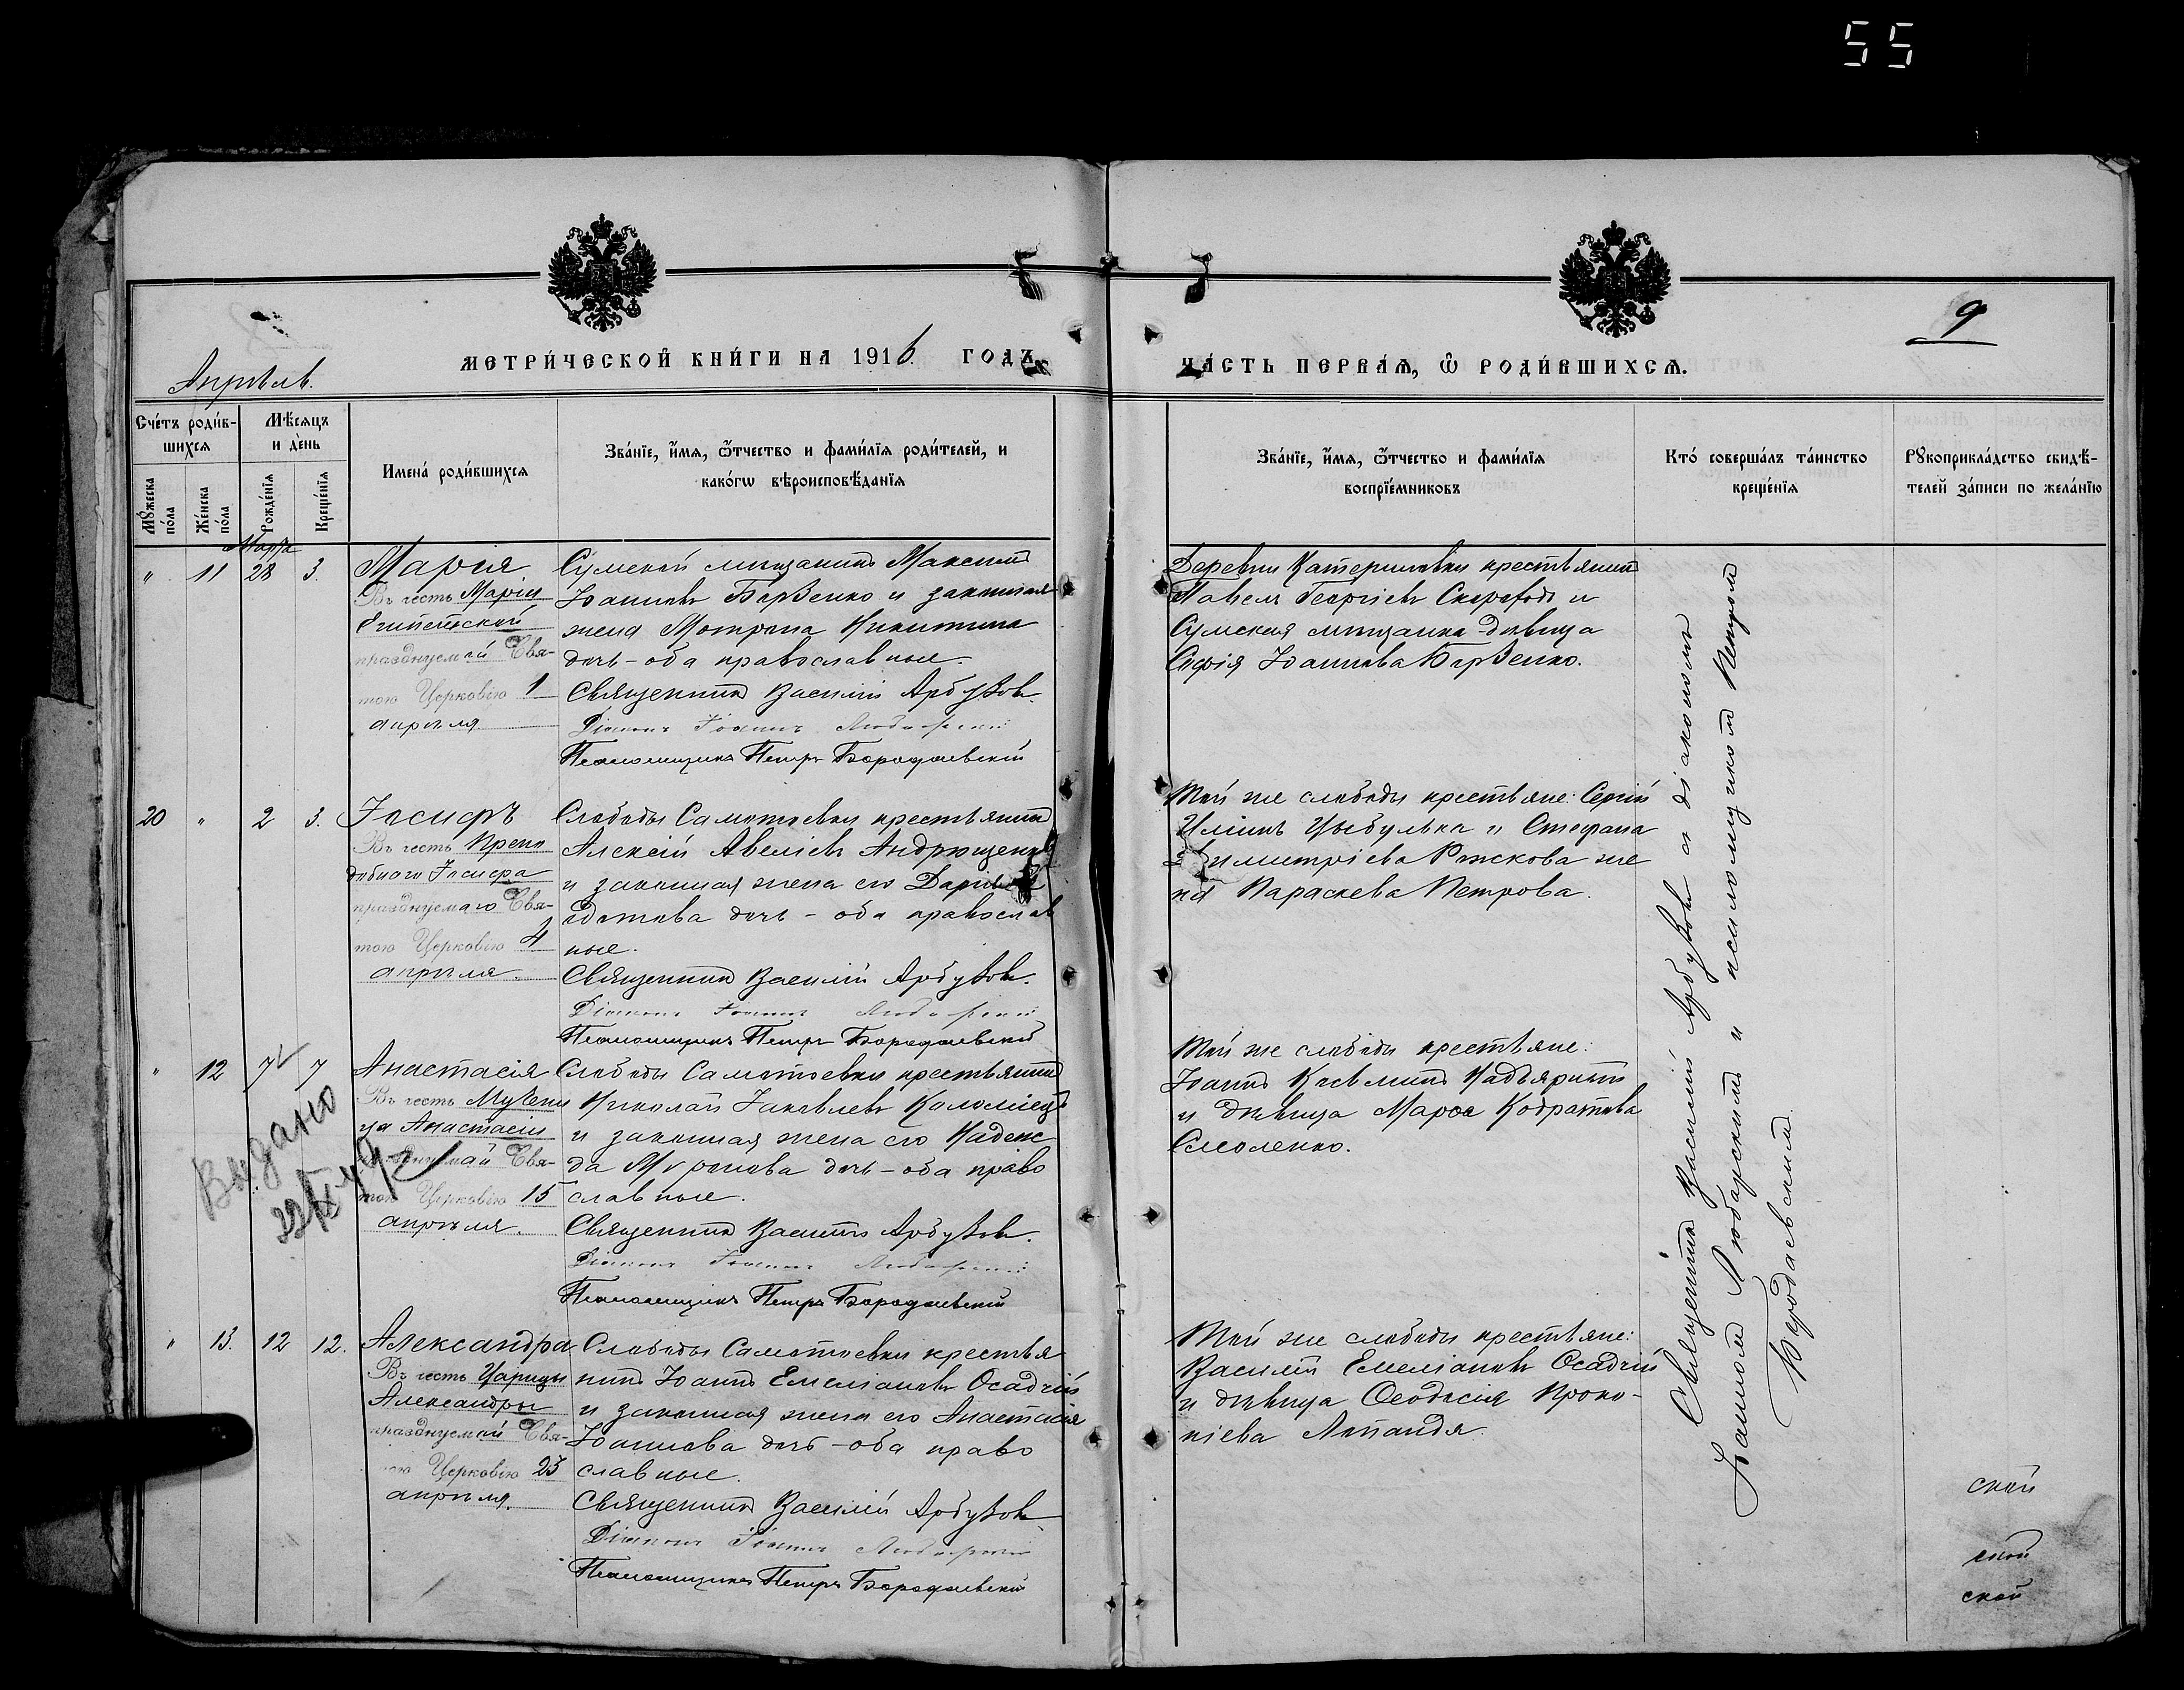 55
9
Апрѣль.
МЕТРИ́ЧЕСКОЙ КНИ́ГИ НА 1916 ГОДЪ
ЧА́СТЬ ПЕРВАѦ, Ѡ҆ РОДИ́ВШИХСѦ.
Сче́тъ роди́в-
шихся
Мѣ́сяцъ
и де́нь
Му́жеска
по́ла
Же́нска
по́ла
Рожде́нїя
Креще́нїя
Имена́ роди́вшихся
Зва́нїе, и҆́мя, ѻ҆́тчество и фами́лїя роди́телей, и
како́гѡ вѣроисповѣ́данїя
Зва́нїе, и҆́мя, ѻ҆́тчество и фами́лїя
воспрїе́мниковъ
Кто́ соверша́лъ та́инство
креще́нїя
Рꙋкоприкла́дство свидѣ́-
телей за́писи по жела́нїю
Марта
" 11 28 3.
Марія
Въ честь Маріи
Египетской
празднуемой Свя-
тою Церковію 1
апрѣля.
Сумской мѣщанинъ Максимъ
Іоанновъ Барзенко и законная
жена Мотрона Никитина
дочь - оба православные.
Священникъ Василій Арбузовъ.
Діаконъ Іоаннъ Любарскій
Псаломщикъ Петръ Бородаевскій
Деревни Катериновки крестьянинъ
Павелъ Георгіевъ и
Сумская мѣщанка-дѣвица
Софія Іоаннова Барзенко.
20 " 2 3.
Іосифъ
Въ честь Препо
добнаго Іосифа
празднуемаго Свя-
тою Церковію 4
апрѣля.
Слободы Самотоевки крестьянинъ
Алексій Авеліевъ Андрющенко
и законная жена его Дарія
едотова дочь - оба православ
ные.
Священникъ Василій Арбузовъ.
Діаконъ Іоаннъ Любарскій
Псаломщикъ Петръ Бородаевскій
Той же слободы крестьяне: Сергій
Цыбулька и Стефана
Димитріева Рыжкова же
на Параскева Петрова.
" 12 7 7
Анастасія
Въ честь Мучени
цы Анастасіи
празднуемой Свя-
тою Церковію 15
апрѣля.
Слободы Самотоевки крестьянинъ
Николай Іаковлевъ Коломіецъ
и законная жена его Надеж
да Мѵронова дочь - оба право
славные.
Священникъ Василій Арбузовъ.
Діаконъ Іоаннъ Любарскій
Псаломщикъ Петръ Бородаевскій
Той же слободы крестьяне:
Іоаннъ
и дѣвица Марѳа Кодратова
Смоленко.
Выдано
" 13. 12 12.
Александра
Въ честь Царицы
Александры
празднуемой Свя-
тою Церковію 23
апрѣля.
Слободы Самотоевки крестья
нинъ Іоаннъ Емеліановъ Осадчій
и законная жена его Анастасія
Іоаннова дочь - оба право
славные.
Священникъ Василій Арбузовъ
Діаконъ Іоаннъ Любарскій
Псаломщикъ Петръ Бородаевскій
Той же слободы крестьяне:
Василій Емеліановъ Осадчій
и дѣвица Ѳеодосія Проко-
піева Лапандя.
Священникъ Василій Арбузовъ съ діакономъ
Іоанномъ Любарскимъ и псаломщикомъ Петромъ
Бородаевскимъ.
ской
ской
ской